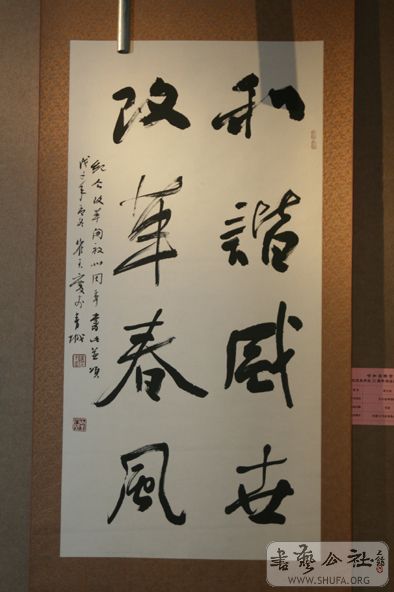 和諧盛世
改革春風
紀念改革開放卅周年書此並頌
戊子年
青城
書藝公社
WWW.SHUFA.ORG